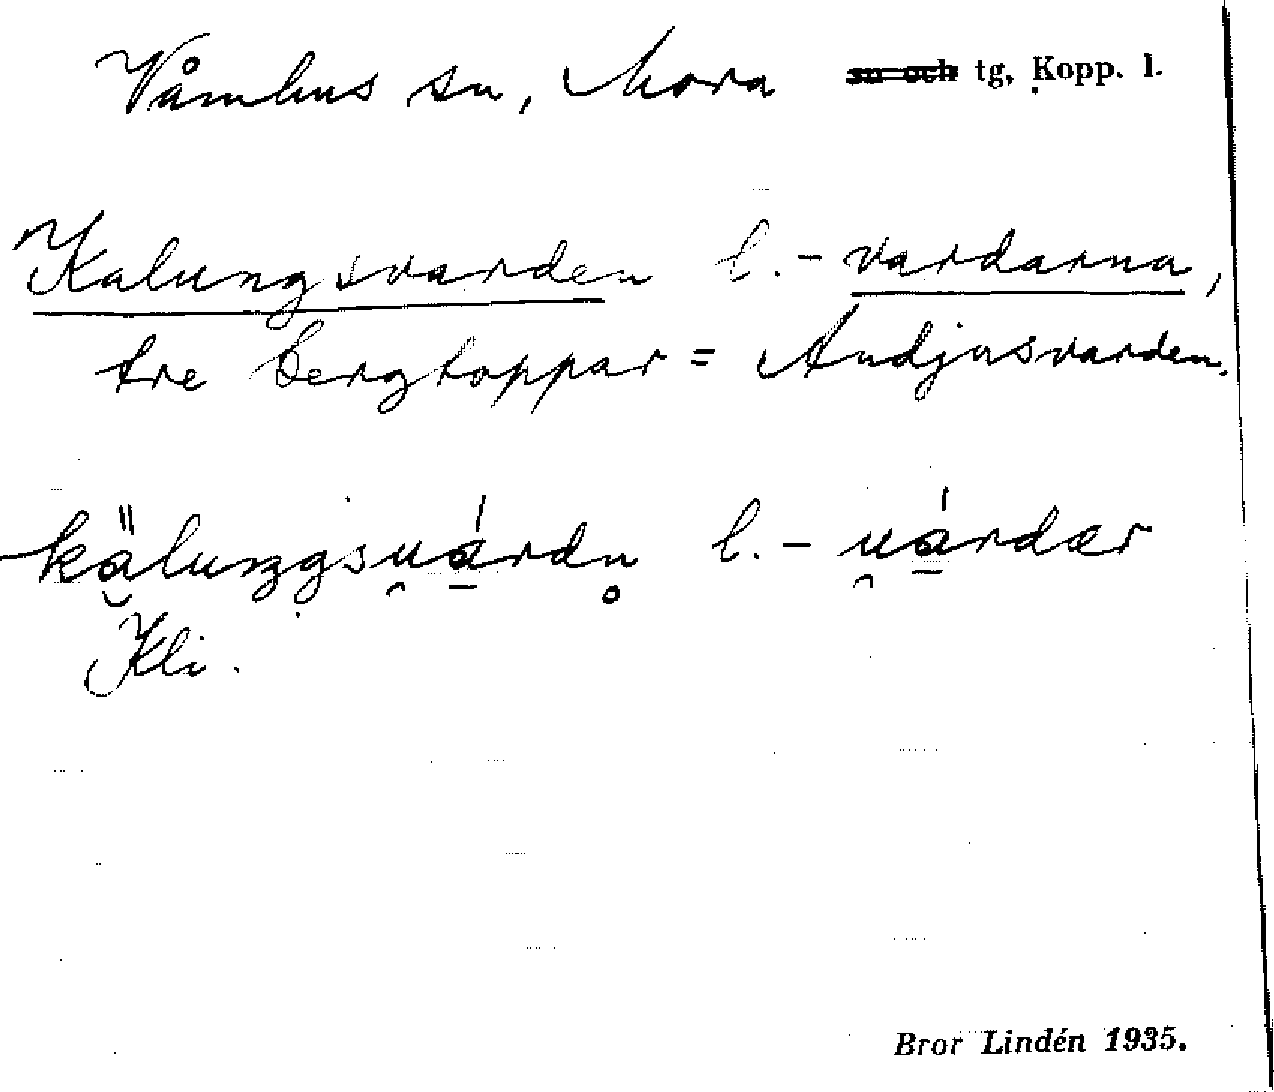 Våmhus sn, Mora sn och tg, Kopp. l.
Kalungsvarden l. -vardarna,
tre bergtoppar = Andjusvarden.
kälunggsuárdn l. -uárdær
Kli.
Bror Lindén 1935.